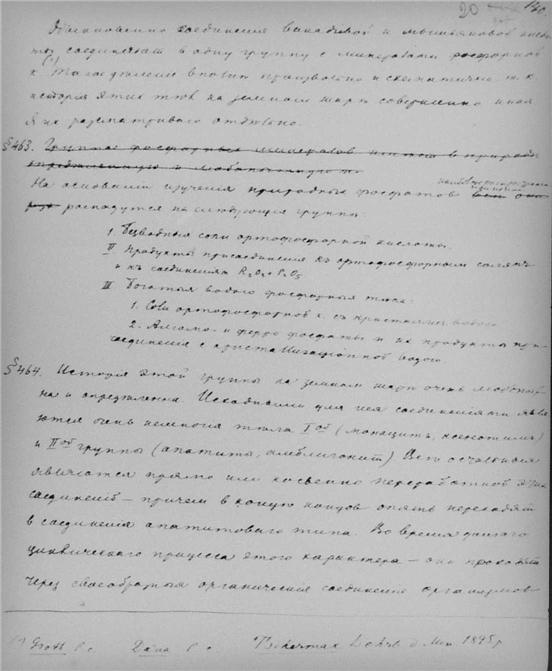 20
140.
Обыкновенно соединения ванадиевой и мышьяковой кисло
ты соединяют в одну группу с минералами фосфорной
к. (1) Такое деление вполне произвольно и схематично т. к.
история этих тел на земном шаре совершенно иная
Я их рассматриваю отдельно.
§463. Группа фосфорных минералов в природе
определенную и любопытную
На основании изучения природных фосфатов
распадутся на следующия группы:
I Безводныя соли ортофосфорной кислоты.
II Продукты присоединения къ ортофосфорным солямъ
и къ соединениям R2O3·P2O5
III Богатыя водою фосфорныя тела.
1. Соли ортофосфорной к. съ кристаллиз. водою.
2. Алюмо- и ферро фосфаты и их продукты при-
соединения с кристаллизационной водою.
§464. История этой группы на земном шаре очень любопыт-
на и определенна. Исходными для нея соединениями явля
ются очень немногия тела I ой (монацит, ксенотим)
и II ой группы (апатит, амблигонит). Все остальныя
являются прямо или косвенно переработкой этих
соединений — причем в конце концов опять переходят
в соединения апатитового типа. Во время этого
циклического процесса этого характера — оне проходят
через своеобразныя органическия соединения организмов
(1) Groth l. c. Dana l. c. Tschermak Lehrb. d. Min. 1895 г.